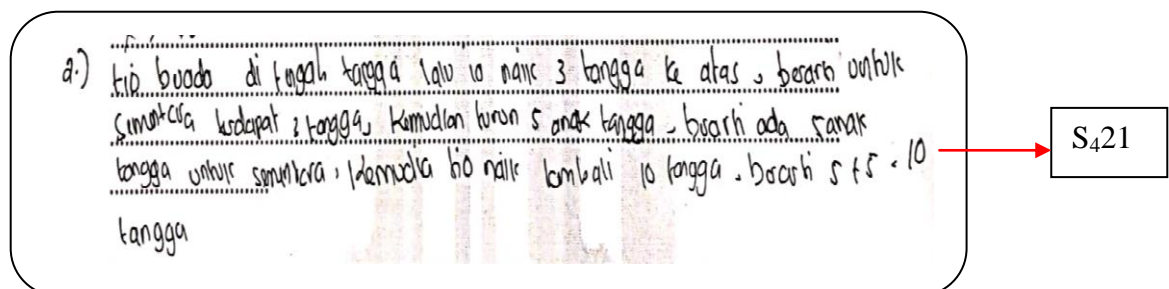 a.) tio buada di tngah tangga lalu io naik 3 tangga ke atas, berarti untuk
sementara terdapat 3 tangga, kemudian turun 5 anak tangga, brarti ada 5 anak
tangga untuk sementara, kemudia tio naik kembali 10 tangga, berarti 5 + 5 = 10
tangga
S₄21